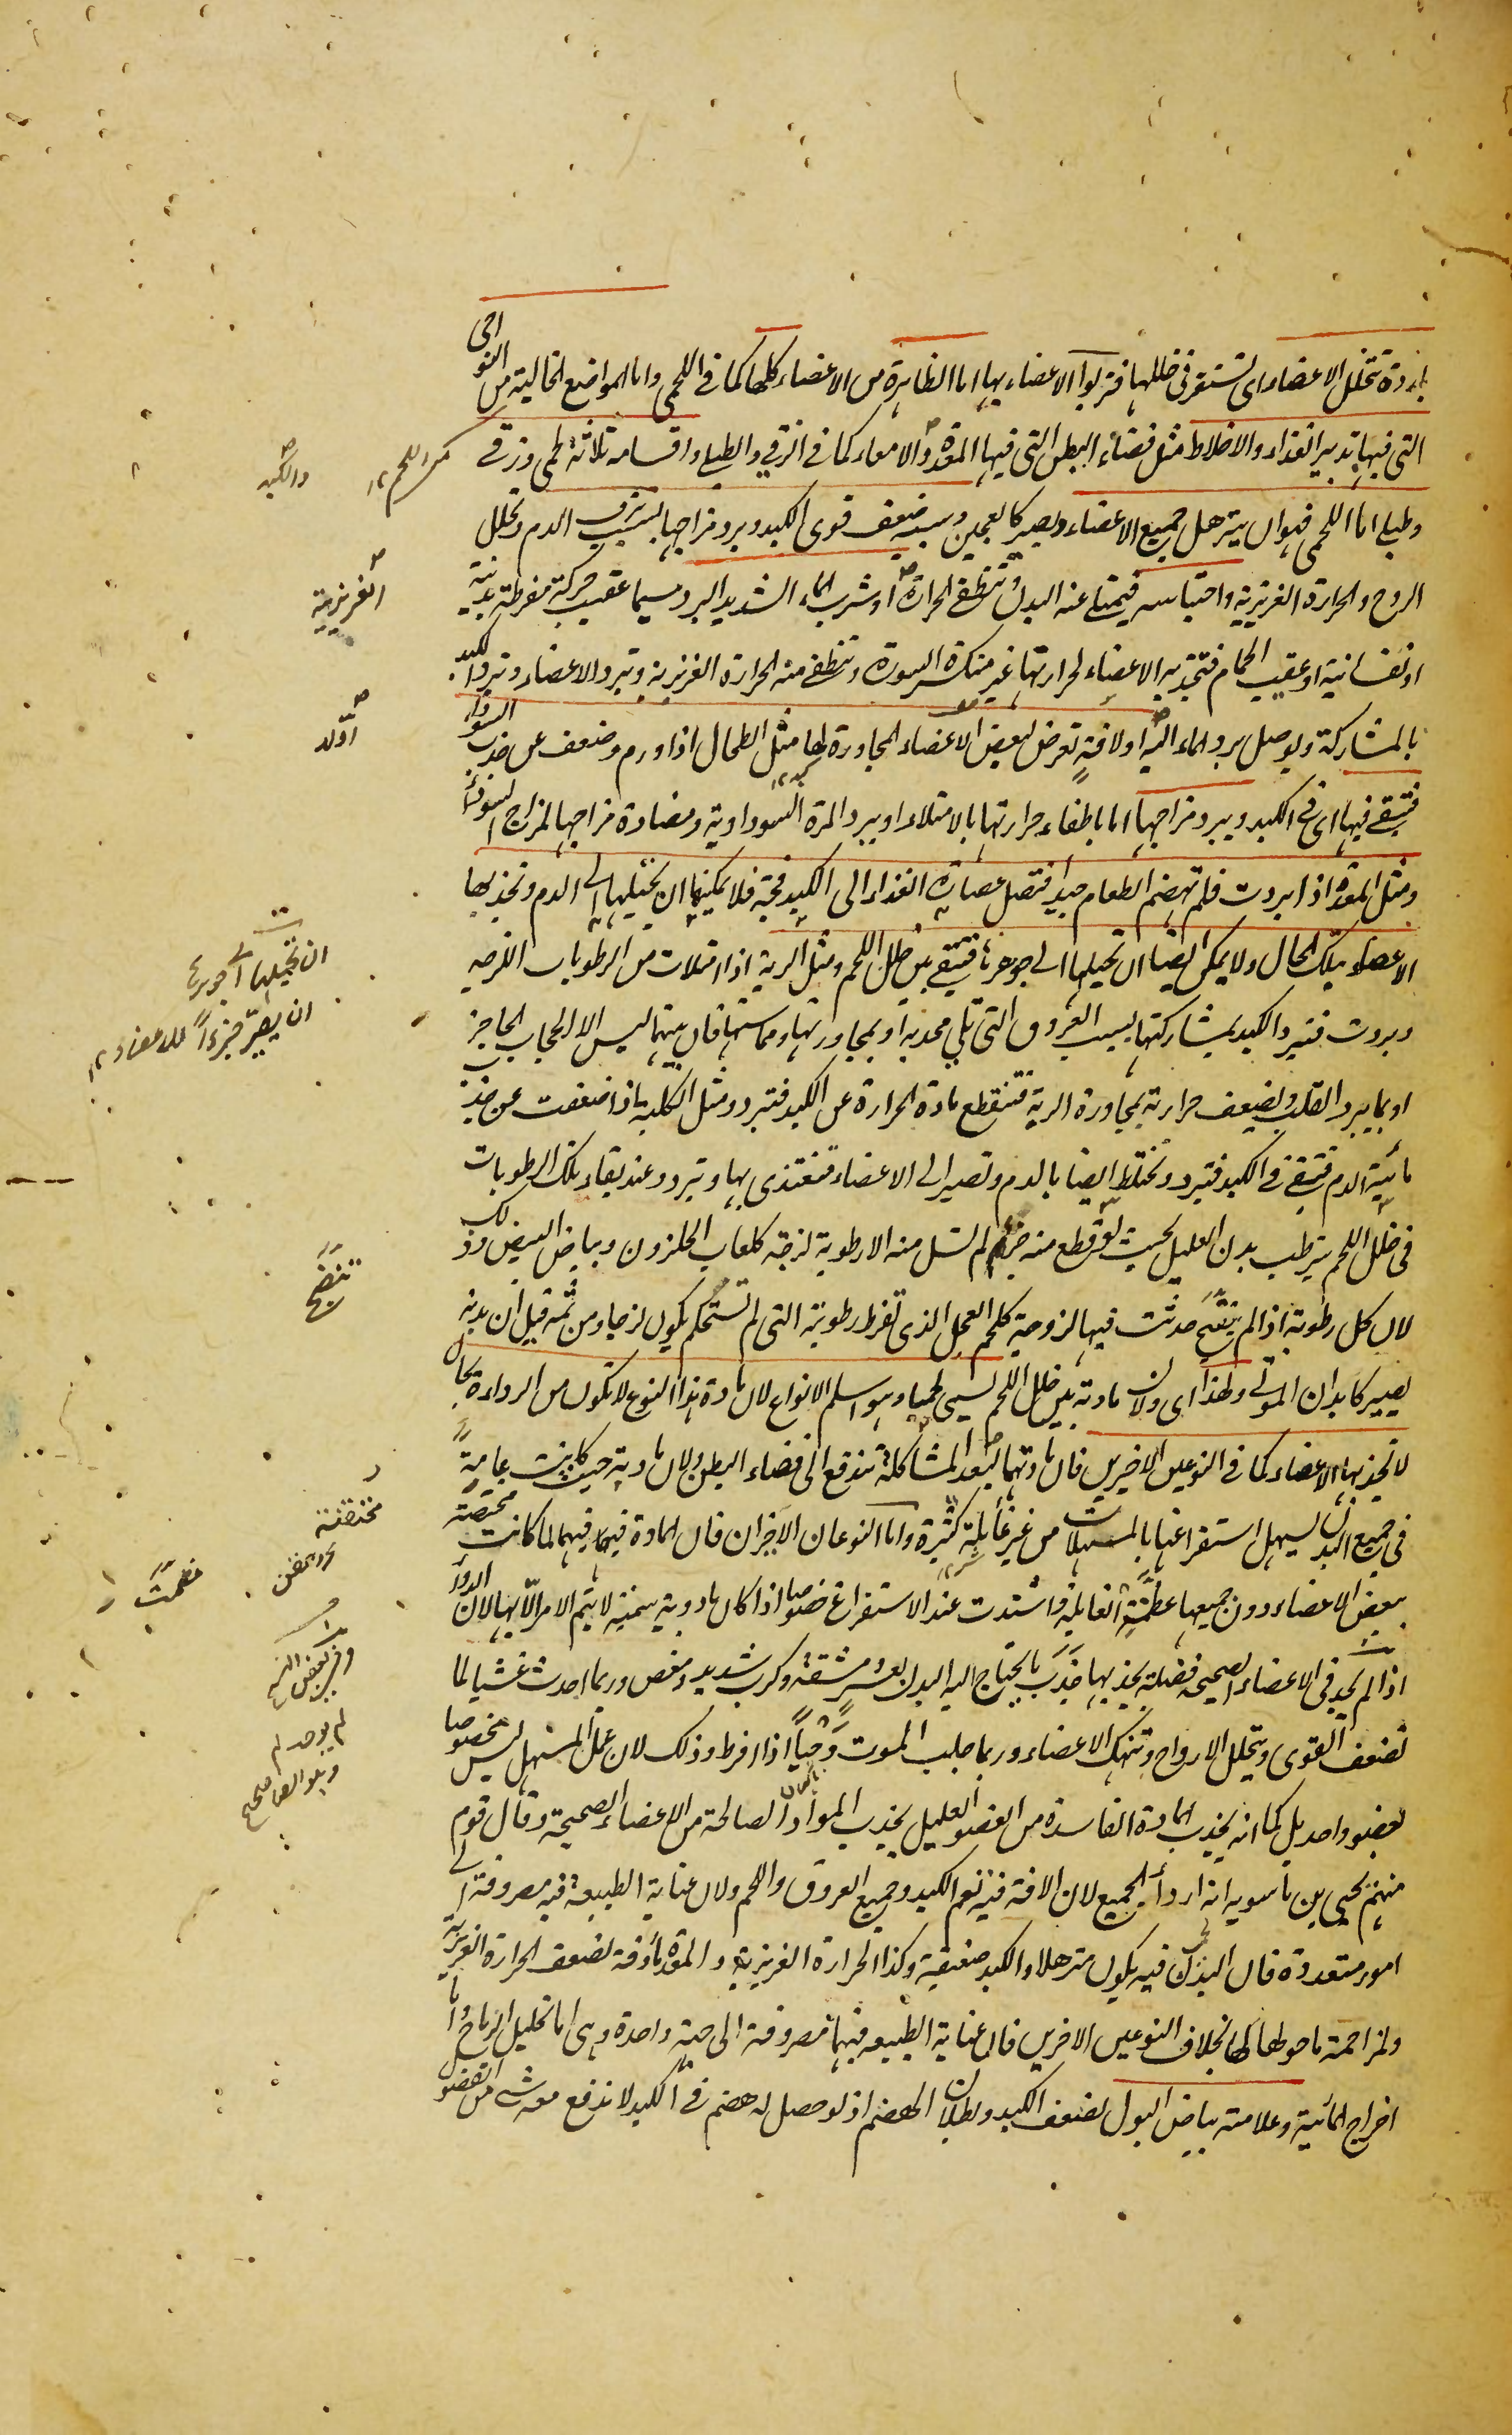 باردة تتخلل الاعضاء اى تستقر فى خللها فتربوا الاعضاء بها اما الظاهرة من الاعضاء كلها كما فى اللحمى واما المواضع الخالية من النواحى
التى فيها تدبير الغذاء والاخلاط مثل فضاء البطن التى فيها المعدة والامعاء كما فى الزقى والطبلى واقسامه ثلاثة لحمى وزقى
وطبلى اما اللحمى فهو ان يترهل جميع الاعضاء ويصير كالعجين وسببه ضعف قوى الكبد وبرد مزاجها بسبب نزف الدم وتحلل
الروح والحرارة الغريزية واحتباسه فيمتلى عنه البدن وتنطفى الحرارة او شرب الماء الشديد البرد سيما عقيب حركة مفرطة بدنية
او نفسانية او عقيب الحمام فتجذبه الاعضاء لحرارتها غير منكسر السورة وتنطفى منه الحرارة الغريزية وتبرد الاعضاء وتبرد الكبد
بالمشاركة ويوصل برد الماء اليه او لافة تعرض لبعض الاعضاء المجاورة لها مثل الطحال اذا ورم وضعف عن جذب السوداء
فتبقى فيها اى فى الكبد ويبرد مزاجها اما باطفاء حرارتها بالامتلاء او ببرد المرة السوداوية ومضادة مزاجها لمزاج
ومثل المعدة اذا بردت فلم تهضم الطعام جيدا فتصل عصارة الغذاء الى الكبد فجة فلا يمكنها ان تحيلها الى الدم وتجذبها
الاعضاء بتلك الحال ولا يمكن ايضا ان تحيلها الى جوهرها فتبقى بين خلل اللحم ومثل الرية اذا امتلات من الرطوبات اللزجة
وبردت فتبرد الكبد بمشاركتها بسبب العروق التى تلى محدبه او بمجاورتها ومماستها فان بينهما ليس الا الحجاب الحاجز
او بما يبرد القلب ويضعف حرارته بمجاورة الرية فتنقطع مادة الحرارة عن الكبد فتبرد ومثل الكلية اذا ضعفت عن جذب
مائية الدم فتبقى فى الكبد فتبرد وتختلط ايضا بالدم وتصير الى الاعضاء فتغتذى بها وتبرد وعند بقاء تلك الرطوبات
فى خلل اللحم يترطب بدن العليل بحيث لو قطع منه جزء لم تسل منه الا رطوبة لزجة كلعاب الحلزون وبياض البيض وذلك
لان كل رطوبة اذا لم ينضج حدثت فيها لزوجة كلحم العجل الذى تفرط رطوبته التى لم تستحكم يكون لزجا ومن ثمه قيل ان بدنه
يصير كابدان الموتى ولهذا اى ولان مادته بين خلل اللحم يسمى لحميا وهو اسلم الانواع لان مادة هذا النوع لا تكون من الرداءة بحال
لا تجذبها الاعضاء كما فى النوعين الاخيرين فان مادتهما لبعد المشاكلة تندفع الى فضاء البطن ولان مادته حيث كانت عامية
فى جميع البدن يسهل استفراغها بالمسهلات من غير غائلة كثيرة واما النوعان الاخيران فان المادة فيهما لما كانت مختصة
ببعض الاعضاء دون جميعها عظمت الغائلة واشتدت عند الاستفراغ خصوصا اذا كان بادوية سمية لا يتم الامر الا بها لان الدواء
اذا لم يجد فى الاعضاء الصحيحة فضلة يجذبها جذب ما يحتاج اليه البدن بعسر ومشقة وكرب شديد ومغص وربما احدث غشيا لما
تضعف القوى ويتحلل الارواح وتنهك الاعضاء وربما جلب الموت وحيا اذا افرط وذلك لان عمل المسهل ليس مخصوصا
بعضو واحد بل كما انه يجذب المادة الفاسدة من العضو العليل يجذب المواد الصالحة من الاعضاء الصحيحة وقال قوم
منهم يحيى بن ماسويه انه اردأ الجميع لان الافة فيه تعم الكبد وجميع العروق واللحم ولان عناية الطبيعة فيه مصروفة الى
امور متعددة فان البدن فيه يكون مترهلا والكبد ضعيفة وكذا الحرارة الغريزية والمعدة مأوفة لضعف الحرارة الغريزية
ولمزاحمة ما حولها لها بخلاف النوعين الاخرين فان عناية الطبيعه فيهما مصروفة الى جهة واحدة وهى اما تحليل الرياح واما
اخراج المائية وعلامته بياض البول لضعف الكبد وبطلان الهضم اذ لو حصل له هضم فى الكبد لاندفع معه شى من الفضول
من اللحم ١٢
والكبد
الغريزية
اوّلد
ان تحيلها الى جوهرها
ان يصير جزءاً للاعضاء ١٢
تنضج
مختصة
عظمت
وفى بعض النسخ
لم يوجد لم
وهو الصا صحيح